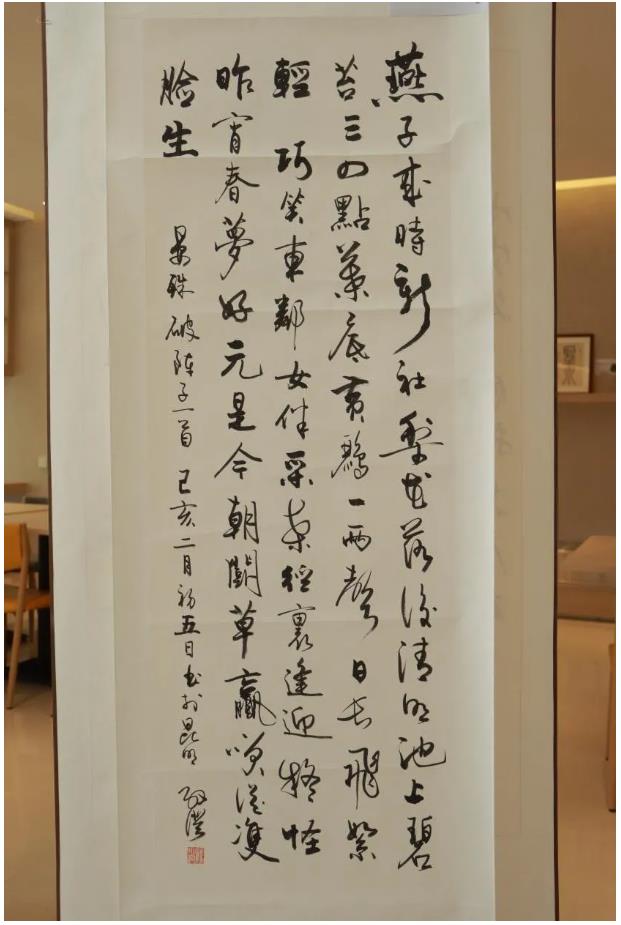 燕子來時新社梨花落後清明池上碧
苔三四點葉底黃鸝一兩聲日長飛絮
輕 巧笑東鄰女伴采桑徑裏逢迎疑怪
昨宵春夢好元是今朝鬭草贏笑從雙
臉生
晏殊破陣子一首 己亥二月初五日書於昆明